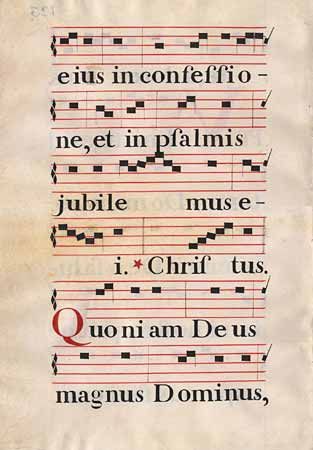 eius in confeſſio-
ne, et in pſalmis
jubile mus e-
i. * Chriſ tus.
Quoniam Deus
magnus Dominus,